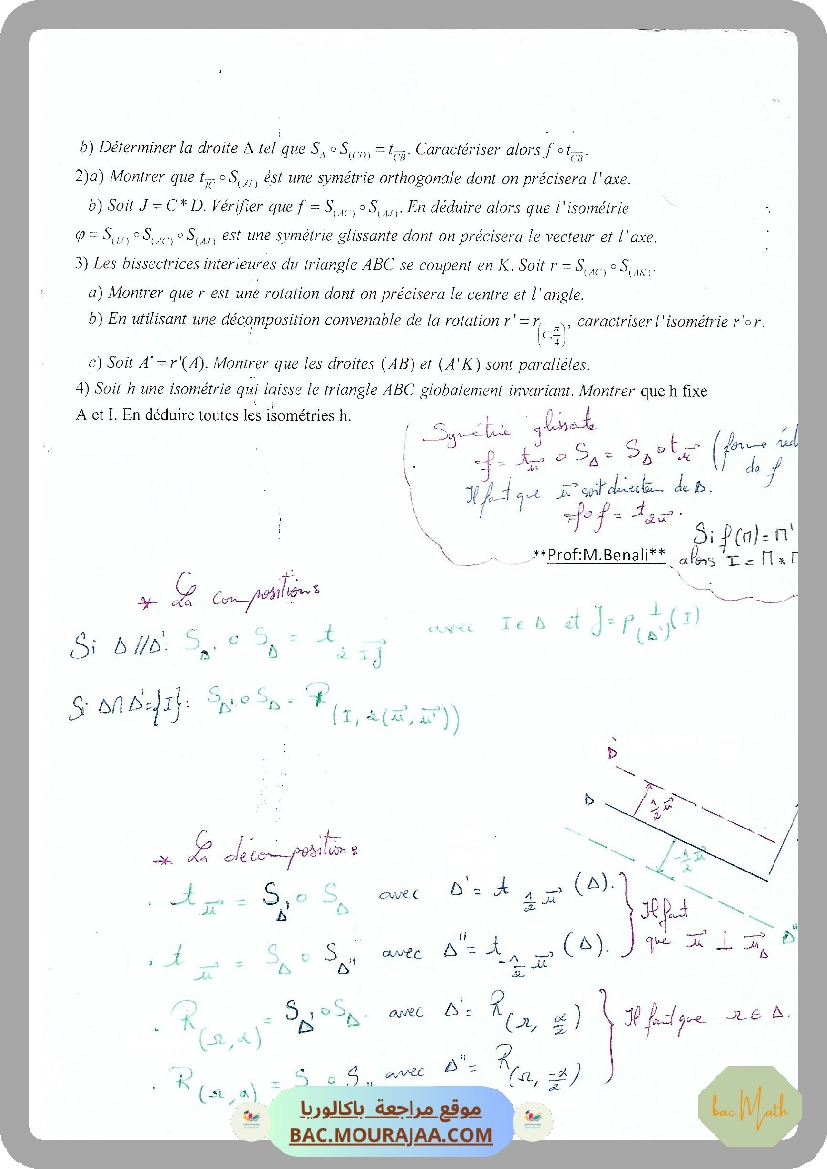 b) Déterminer la droite Δ tel que S_Δ ∘ S_(CD) = t_CB. Caractériser alors f ∘ t_CB.
2)a) Montrer que t_IC ∘ S_(AI) ést une symétrie orthogonale dont on précisera l'axe.
b) Soit J = C * D. Vérifier que f = S_(AC) ∘ S_(AJ). En déduire alors que l'isométrie
φ = S_(IJ) ∘ S_(AC) ∘ S_(AJ) est une symétrie glissante dont on précisera le vecteur et l'axe.
3) Les bissectrices interieures du triangle ABC se coupent en K. Soit r = S_(AC) ∘ S_(AK).
a) Montrer que r est une rotation dont on précisera le centre et l'angle.
b) En utilisant une décomposition convenable de la rotation r' = r_(C,π/4), caractriser l'isométrie r'∘r.
c) Soit A' = r'(A). Montrer que les droites (AB) et (A'K) sont paralléles.
4) Soit h une isométrie qui laisse le triangle ABC globalement invariant. Montrer que h fixe
A et I. En déduire toutes les isométries h.
Symétrie glissate
f = t_u⃗ ∘ S_Δ = S_Δ ∘ t_u⃗ (forme réd
de f
Il faut que u⃗ soit directeur de Δ.
f∘f = t_2u⃗.
Si f(M) = M'
**Prof:M.Benali** alors I = M * M
* La compositions
Si Δ//Δ'. S_Δ' ∘ S_Δ = t_2IJ⃗ avec I∈Δ et J = p⊥_(Δ')(I)
Si Δ∩Δ'={I}: S_Δ' ∘ S_Δ = R_(I, 2(u⃗,u⃗'))
Δ'
Δ
1/2 u⃗
-1/2 u⃗
Δ"
* La décompositions
. t_u⃗ = S_Δ' ∘ S_Δ avec Δ' = t_1/2u⃗ (Δ).
. t_u⃗ = S_Δ ∘ S_Δ" avec Δ" = t_-1/2u⃗ (Δ).
Il faut
que u⃗ ⊥ u⃗_Δ
. R_(Ω,α) = S_Δ' ∘ S_Δ. avec Δ' = R_(Ω, α/2)
. R_(Ω,α) = S ∘ S_" avec Δ" = R_(Ω, -α/2)
Il faut que Ω ∈ Δ.
موقع مراجعة باكالوريا
BAC.MOURAJAA.COM
bacMath